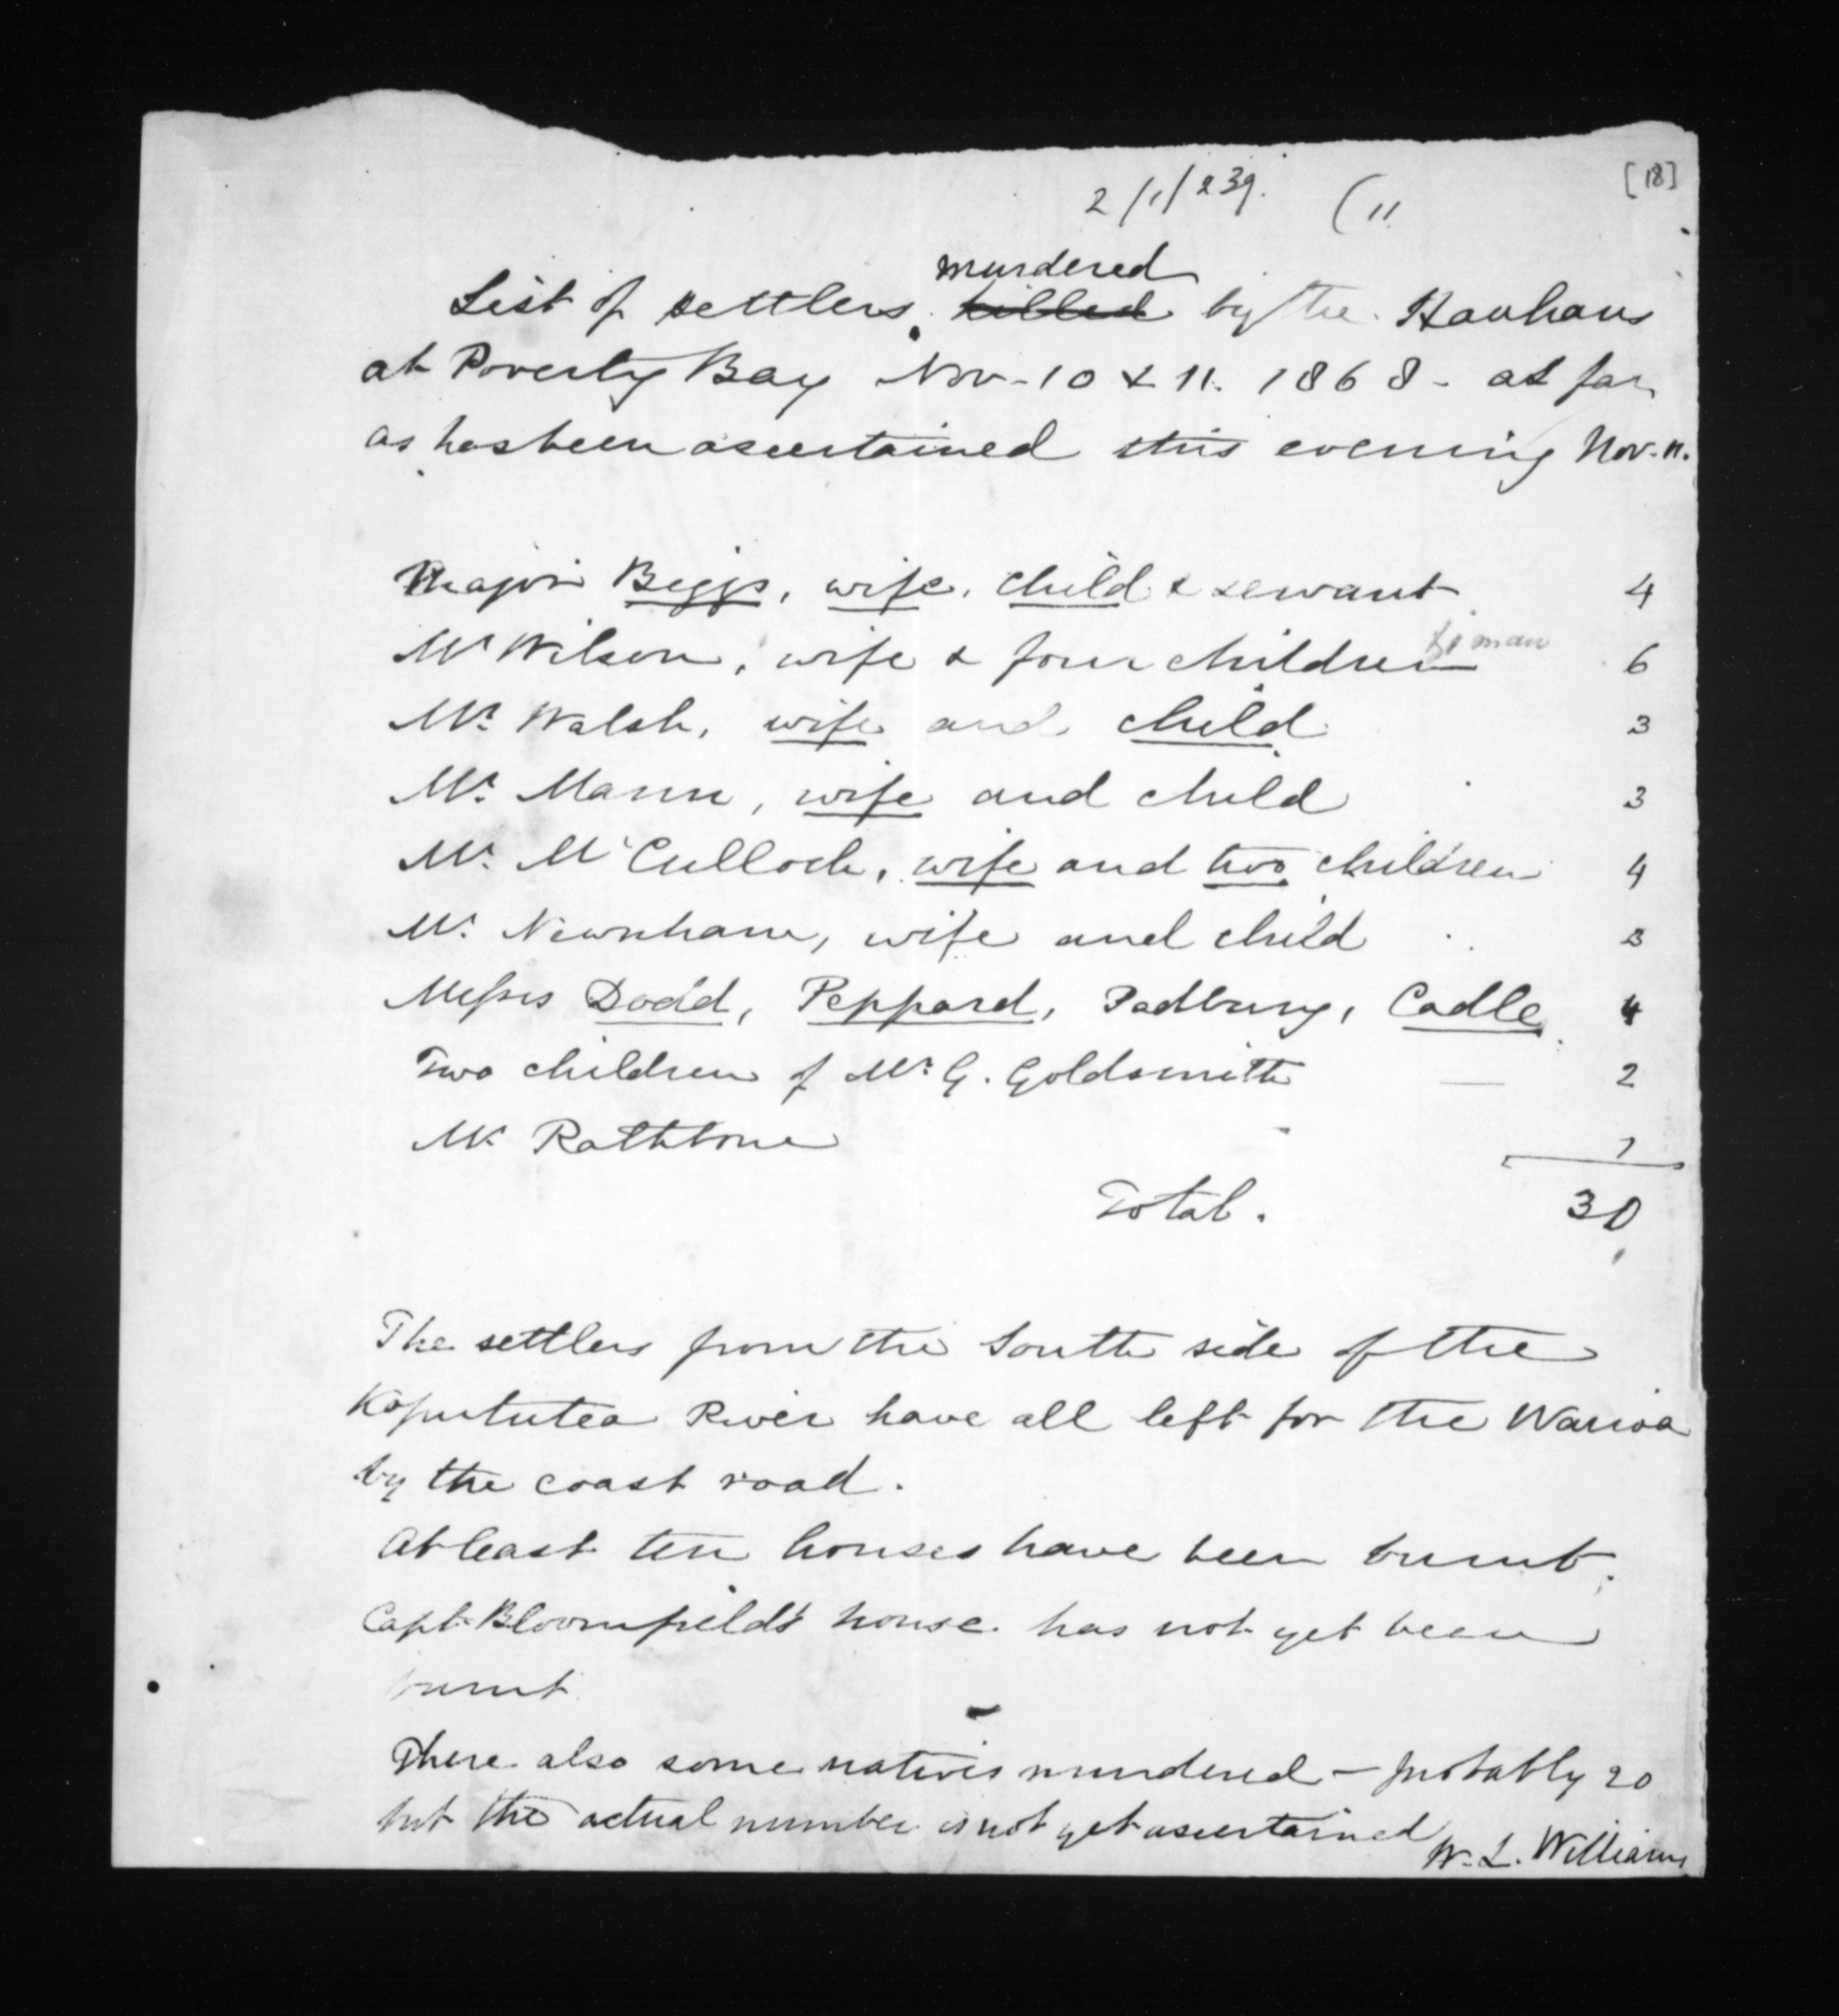 [18]
2/1/239. (11
murdered
List of settlers killed by the Hauhaus
at Poverty Bay Nov. 10 & 11. 1868 - as far
as has been ascertained this evening Nov. 11.
Major Biggs, wife, child & servant 4
& 1 man
Mr Wilson, wife & four children 6
Mr. Walsh, wife and child 3
Mr. Mann, wife and child 3
Mr. McCulloch, wife and two children 4
Mr. Newnham, wife and child 3
Messrs Dodd, Peppard, Padbury, Cadle 4
Two children of Mr. G. Goldsmith — 2
Mr Rathbone 1
Total. 30
The settlers from the South side of the
Kopututea River have all left for the Wairoa
by the coast road.
At least ten houses have been burnt.
Capt. Bloomfield's house has not yet been
burnt
There also some natives murdered - probably 20
but the actual number is not yet ascertained
W. L. Williams